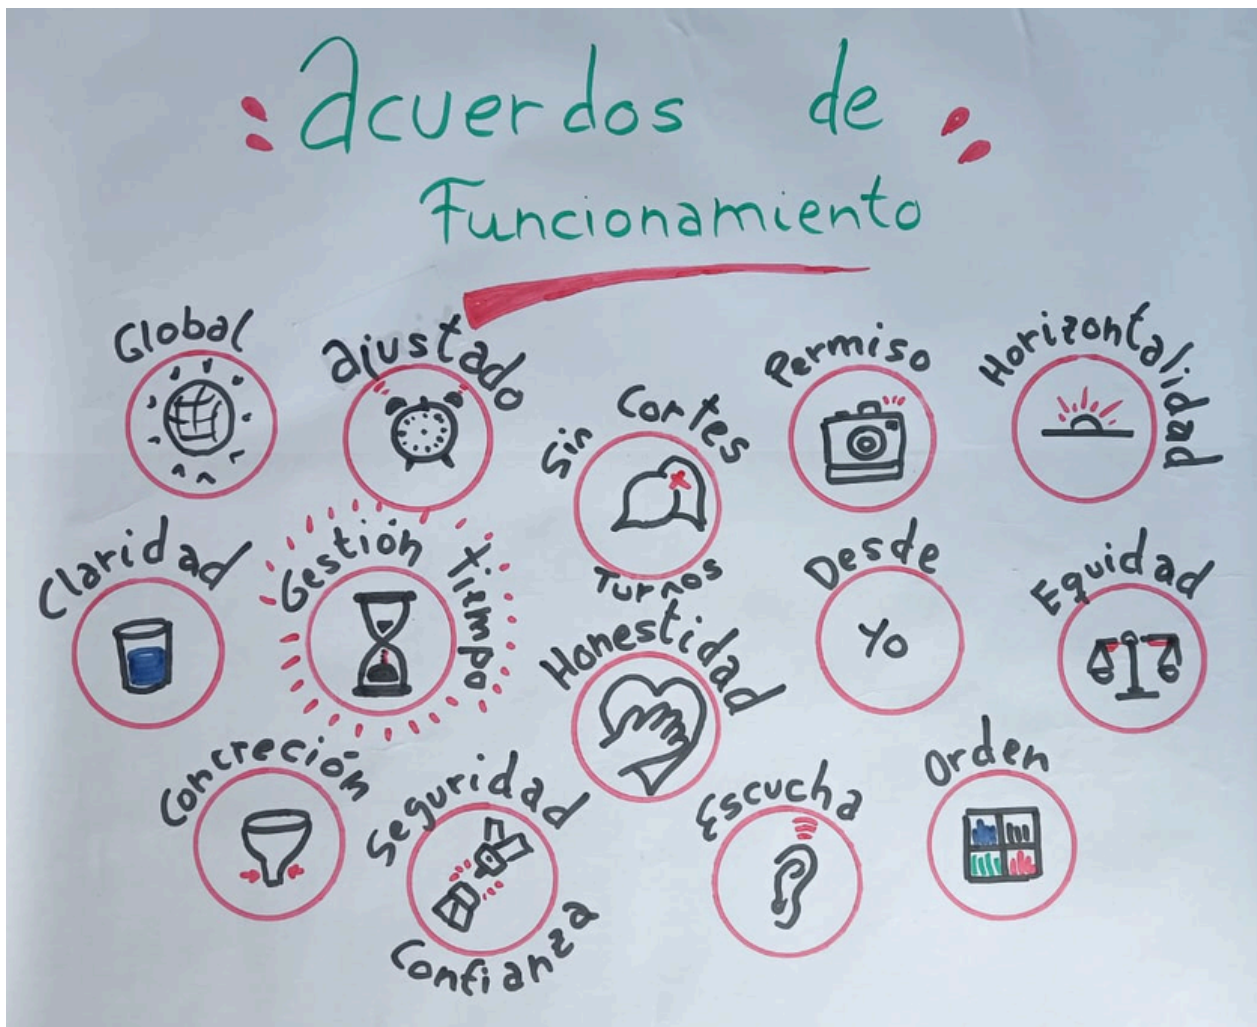 Acuerdos de
Funcionamiento
Global
ajustado
Sin Cortes
Turnos
Permiso
Horizontalidad
Claridad
Gestión Tiempo
Honestidad
Desde
Yo
Equidad
Concreción
Seguridad
Confianza
Escucha
Orden